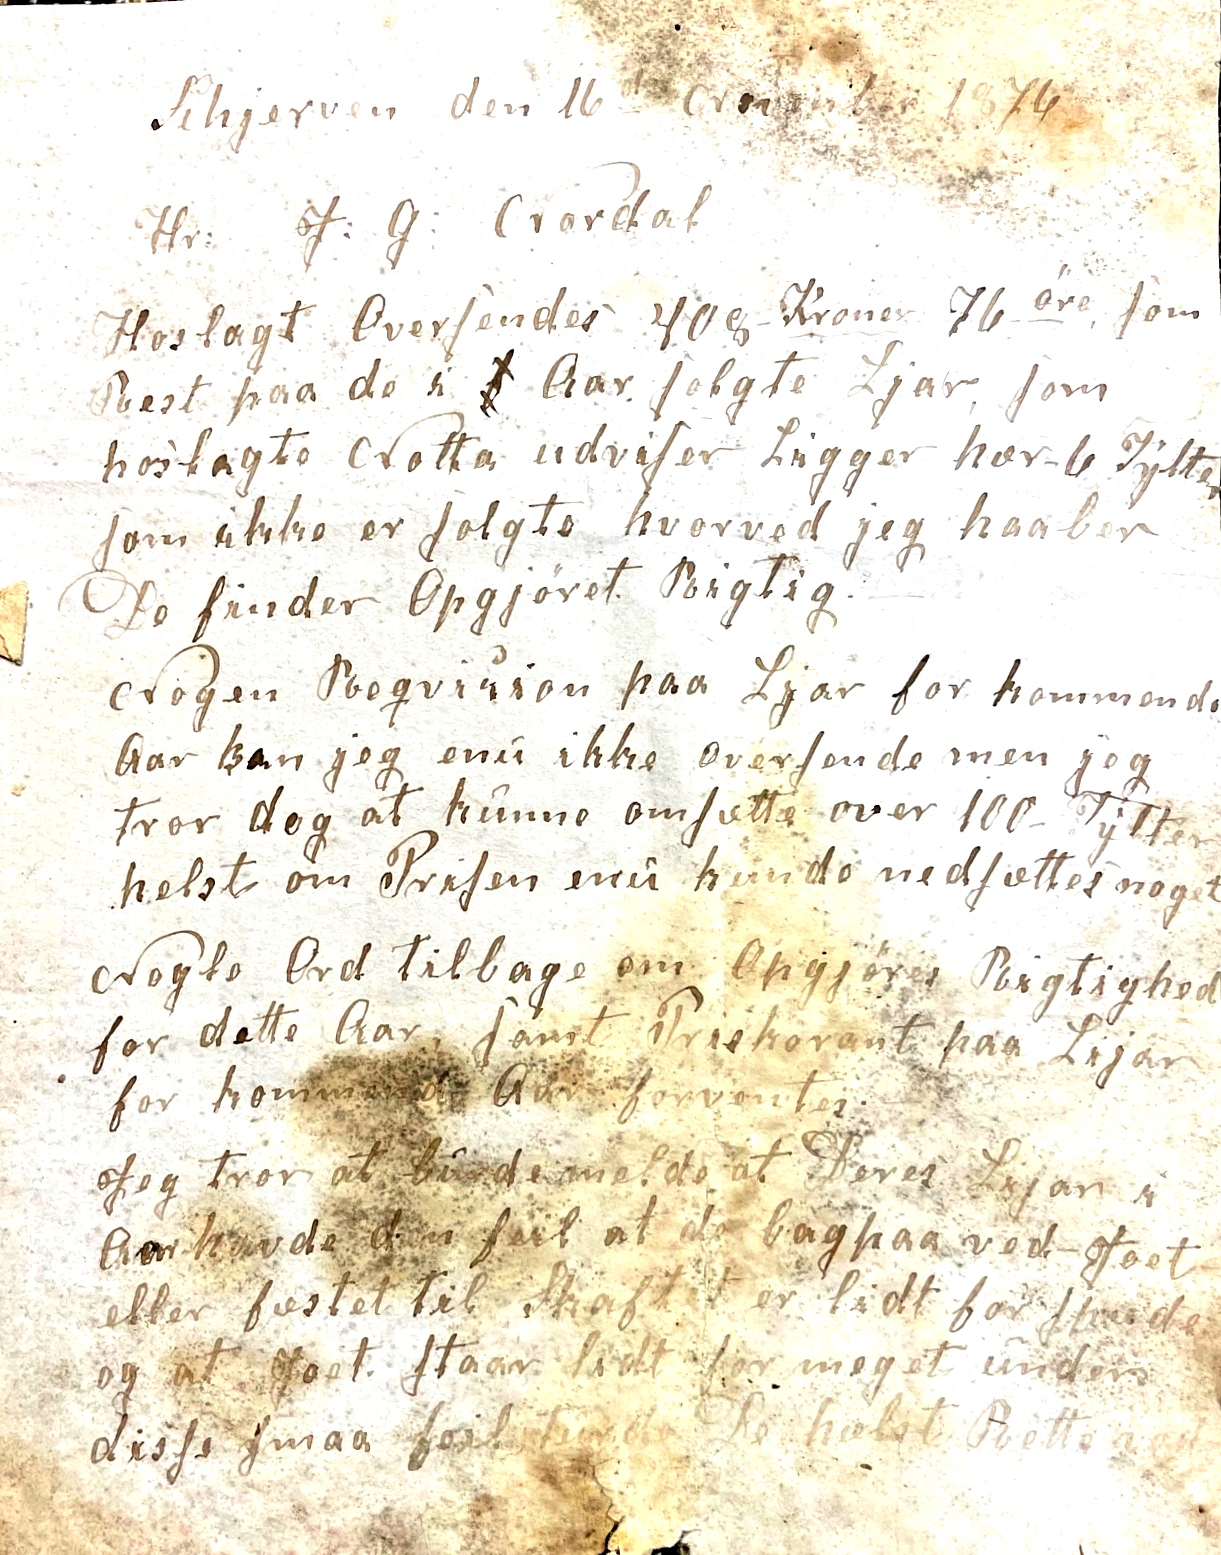 Schjerven den 16d November 1876
Hr: J: G: Nordal
Hoslagt Oversendes 408 Kroner 76 öre, som
Rest paa de i Aar solgte Ljar, som
hoslagte Notta udviser Ligger hær 6 Tÿlter
som ikke er solgte hvorved jeg haaber
De finder Opgjöret Rigtig.
Nogen Reqvisision paa Ljar for kommende
Aar kan jeg enū ikke oversende men jeg
tror dog at kūnne omsætte over 100 Tÿlter
helst om Prisen enū kunde nedsættes noget
Nogle Ord tilbage om Opgjöres Rigtighed
for dette Aar, samt Priskorant paa Lijar
for kommend Aar forventes.
Jeg tror at būrde melde at Deres Lijar i
Aar havde den feil at de bagpaa ved Joet
eller fæstet til Skaftet er lidt for
og at Joet staar lidt for meget ūnder
disse smaa feil De hælst Rette ved